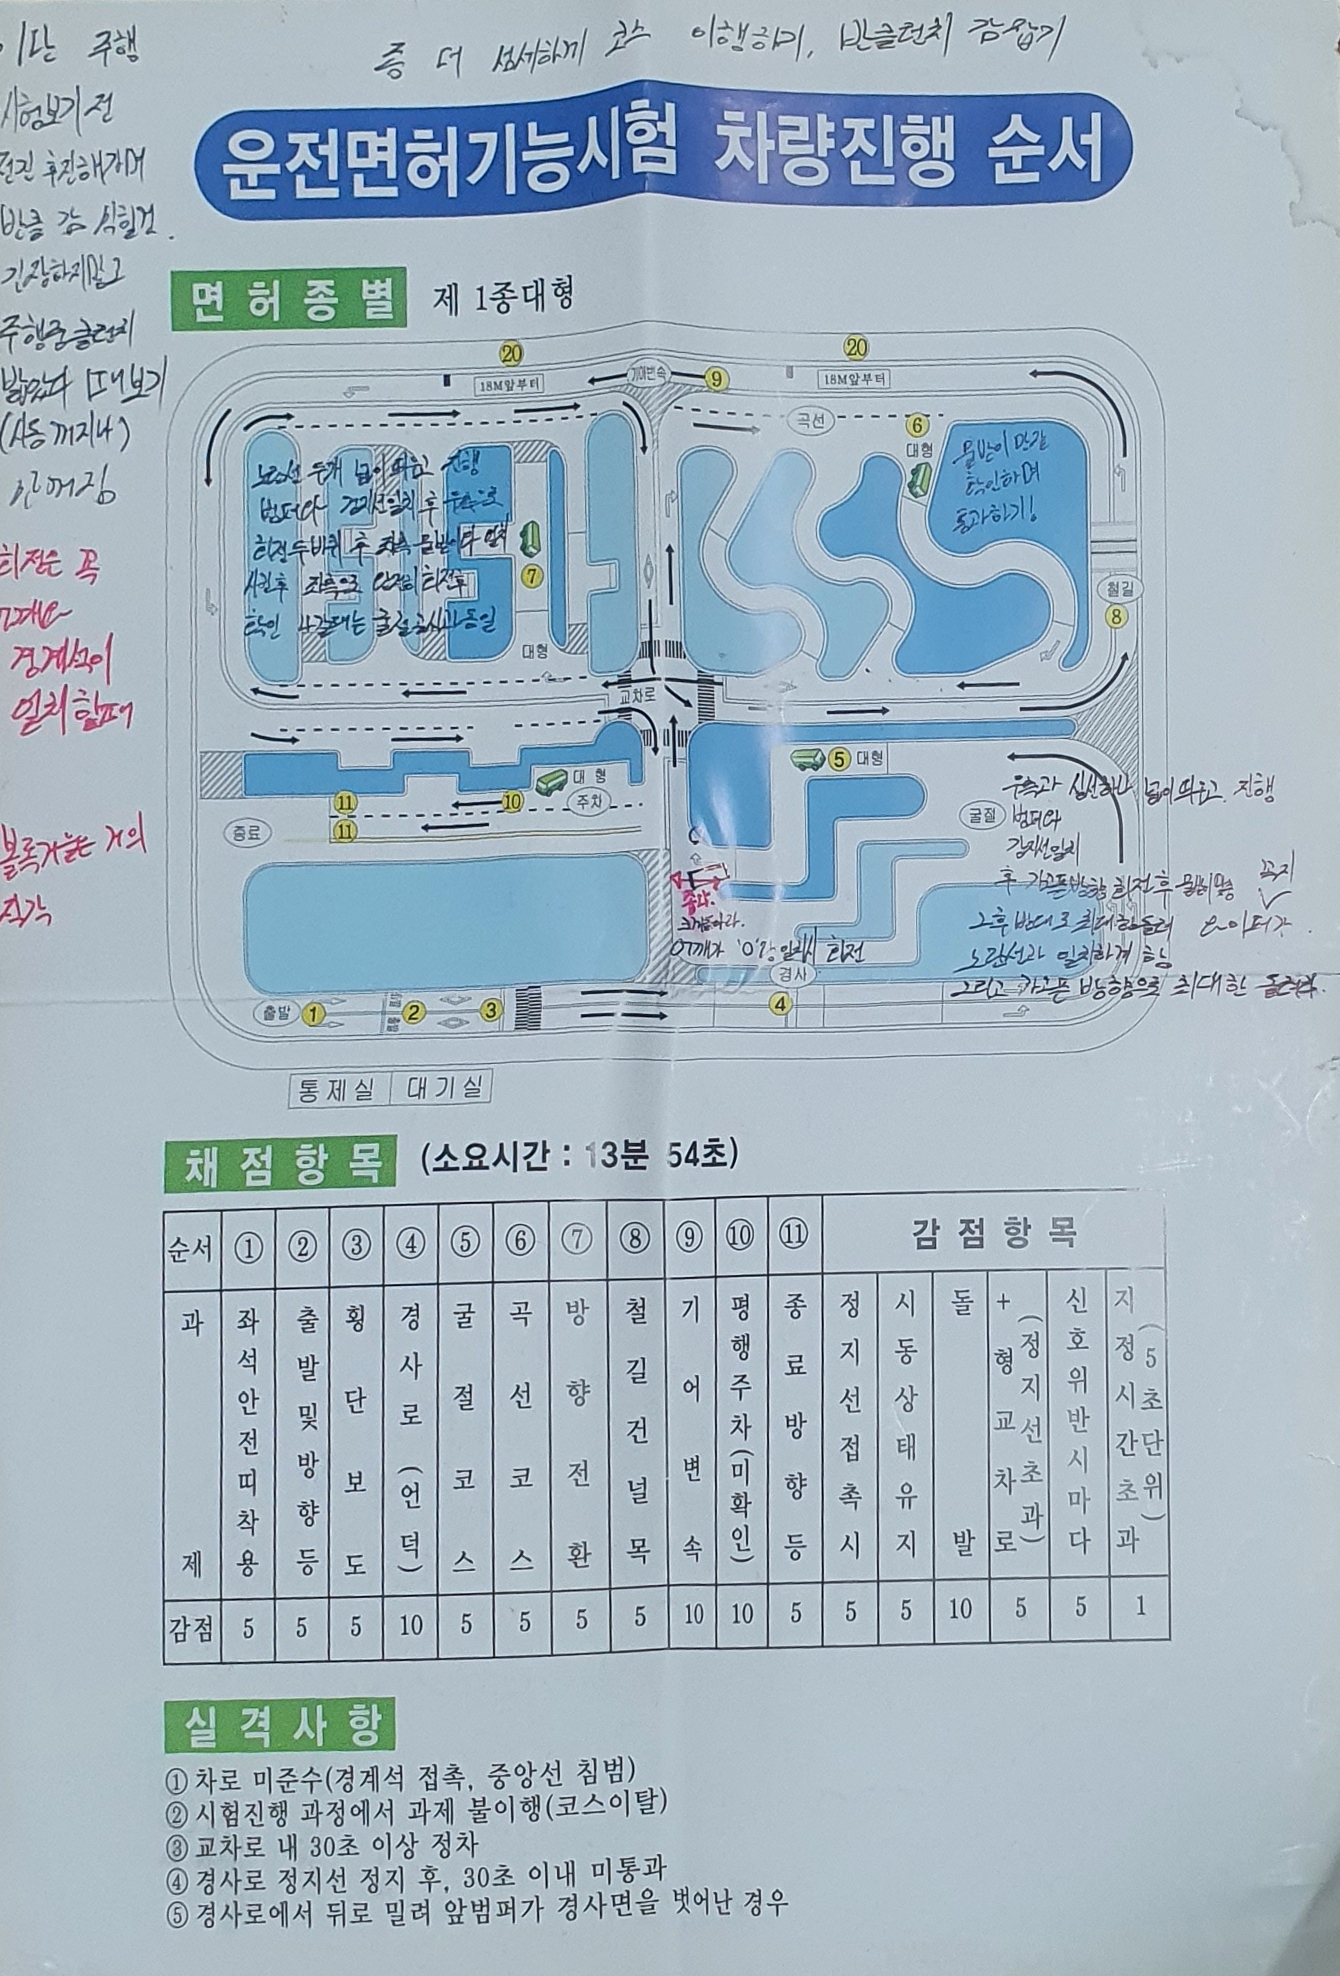 좀 더 섬세하게 코스 이행하기, 반클런치 감잡기
이단 주행
시험보기전
전진 후진해가며
반클 감 익힐것.
긴장하지말고
주행중클런치
밟았다 떼보기
(시동 꺼지나)
안꺼짐
회전은 꼭
경계석이
일치할때
운전면허기능시험 차량진행 순서
면허종별 제 1종대형
20 20
18M앞부터 기어변속 9 18M앞부터
곡선 6
대형
노란선 두개 넓이 띄우고 진행
범퍼와 검지선일치 후
회전 두바퀴 후 좌측
좌측으로 완전히 회전후
확인
물받이 만
확인하며
통과하기!
7
대형
철길
8
교차로
5 대형
대형
11 10 주차
11
종료
굴절
우측과 넓이 띄우고 진행
범퍼와
검지선일치
그후 반대로 최대한돌려
노란선과 일치하게
그리고 방향으로 최대한 돌려라.
어깨가 '0'랑일치시 회전
경사
출발 1 2 3 4
통제실 대기실
채점항목 (소요시간 : 13분 54초)
순서 ① ② ③ ④ ⑤ ⑥ ⑦ ⑧ ⑨ ⑩ ⑪ 감점항목
과제 좌석안전띠착용 출발및방향등 횡단보도 경사로(언덕) 굴절코스 곡선코스 방향전환 철길건널목 기어변속 평행주차(미확인) 종료방향등 정지선접촉시 시동상태유지 돌발 +형교차로(정지선초과) 신호위반시마다 지정시간초과(5초단위)
감점 5 5 5 10 5 5 5 5 10 10 5 5 5 10 5 5 1
실격사항
① 차로 미준수(경계석 접촉, 중앙선 침범)
② 시험진행 과정에서 과제 불이행(코스이탈)
③ 교차로 내 30초 이상 정차
④ 경사로 정지선 정지 후, 30초 이내 미통과
⑤ 경사로에서 뒤로 밀려 앞범퍼가 경사면을 벗어난 경우